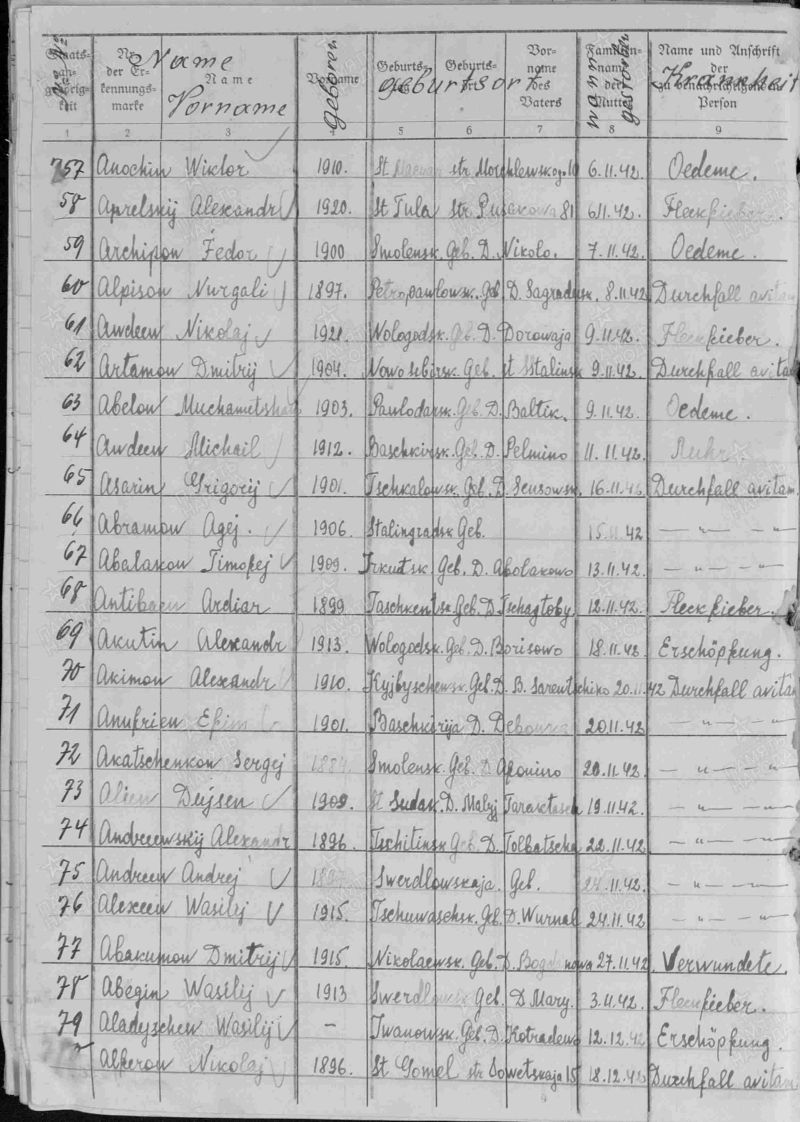 Name Vorname geboren Geburtsort wann gestorben Krankheit
Staatsangehörigkeit Nr. der Erkennungsmarke Name Vorname Geburtstag Geburtsort Vorname des Vaters Familienname der Mutter Name und Anschrift der zu benachrichtigenden Person
1 2 3 4 5 6 7 8 9
757 Anochin Wiktor 1910. St str Morchlewskogo 10 6.11.42. Oedeme.
58 Aprelskij Alexandr 1920. St Tula str Pusakowa 81 6.11.42. Fleckfieber.
59 Archipon Fedor 1900 Smolensk. Geb. D. Nikolo. 7.11.42. Oedeme.
60 Alpison Nurgali 1897. Petropawlowsk. Geb. D. Sagradwsk. 8.11.42 Durchfall avitam
61 Awdeew Nikolaj 1921. Wologodsk. Geb. D. Dorowaja 9.11.42. Fleckfieber.
62 Artamon Dmitrij 1904. Nowosebirsk. Geb. st Sstalinsk 9.11.42. Durchfall avitam
63 Abelow Muchametsha 1903. Pawlodarsk. Geb. D. Baltik. 9.11.42. Oedeme.
64 Awdeew Michail 1912. Baschkirsk. Geb. D. Pelmino 11.11.42. Ruhr.
65 Asarin Grigorij 1901. Tschkalowsk. Geb. D. Sensowsk. 16.11.42. Durchfall avitam.
66 Abramow Agej. 1906. Stalingradsk Geb. 15.11.42 — " — —
67 Abalakow Timofej 1909. Irkutsk Geb. D. Abolakowo 13.11.42. — " — —
68 Antibaew Ardiar 1899 Taschkentsk. Geb. D. Tschagtoby. 12.11.42. Fleckfieber.
69 Akutin Alexandr 1913. Wologodsk. Geb. D. Borisowo 18.11.42. Erschöpfung.
70 Akimow Alexandr 1910. Kyjbyschewsk. Geb. D. B. Sarentschiko 20.11.42 Durchfall avitam
71 Anufriew Efim 1901. Baschkirija D. 20.11.42 — " — —
72 Akatschenkow Sergej 1884. Smolensk. Geb. D. Afonino 20.11.42. — " — —
73 Aliew Dejsen 1909. St Sudak. D. Malyj Taraktasch 19.11.42. — " — —
74 Andreewskij Alexandr 1896. Tschitinsk Geb. D. Tolbatscha 22.11.42 — " — —
75 Andreew Andrej 1897. Swerdlowskaja. Geb. 24.11.42. — " — —
76 Alexeew Wasilij 1915. Tschuwaschsk. Geb. D. Wurnal 24.11.42 — " — —
77 Abakumow Dmitrij 1915. Nikolaewsk. Geb. D. Bogdanowa 27.11.42. Verwundete.
78 Abegin Wasilij 1913 Swerdlowsk Geb. D Mary. 3.11.42. Fleckfieber.
79 Aladyschew Wasilij — Iwanowsk. Geb. D. Kotradewo 12.12.42 Erschöpfung.
Alferow Nikolaj 1896. St Gomel str Sowetskaja 15 18.12.42 Durchfall avitam